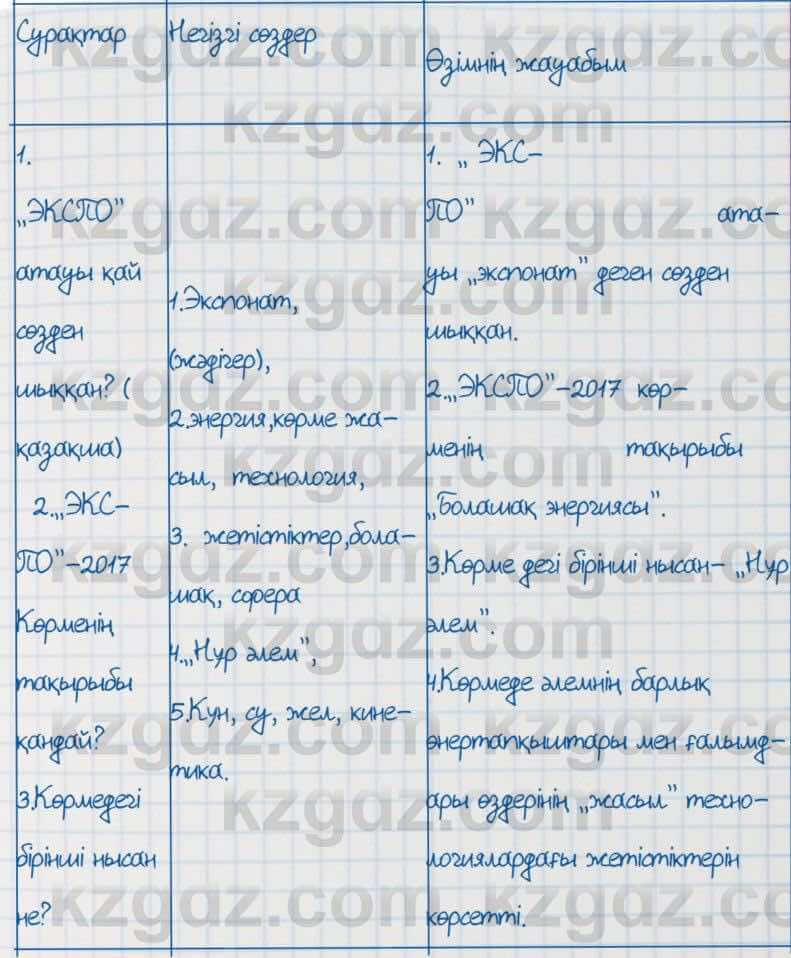 Сұрақтар
Негізгі сөздер
Өзімнің жауабым
1.
„ЭКСПО"
атауы қай
сөзден
шыққан? (
қазақша)
2.„ЭКС-
ПО"-2017
Көрменің
тақырыбы
қандай?
3.Көрмедегі
бірінші нысан
не?
1.Экспонат,
(жәдігер),
2.энергия,көрме жа-
сыл, технология,
3. жетістіктер,бола-
шақ, сфера
4.„Нұр әлем",
5.Күн, су, жел, кине-
тика.
1. „ ЭКС-
ПО" ата-
уы „экспонат" деген сөзден
шыққан.
2.„ЭКСПО"-2017 көр-
менің тақырыбы
„Болашақ энергиясы".
3.Көрме дегі бірінші нысан- „Нұр
әлем".
4.Көрмеде әлемнің барлық
өнертапқыштары мен ғалымд-
ары өздерінің „жасыл" техно-
логиялардағы жетістіктерін
көрсетті.
kzgdz.com